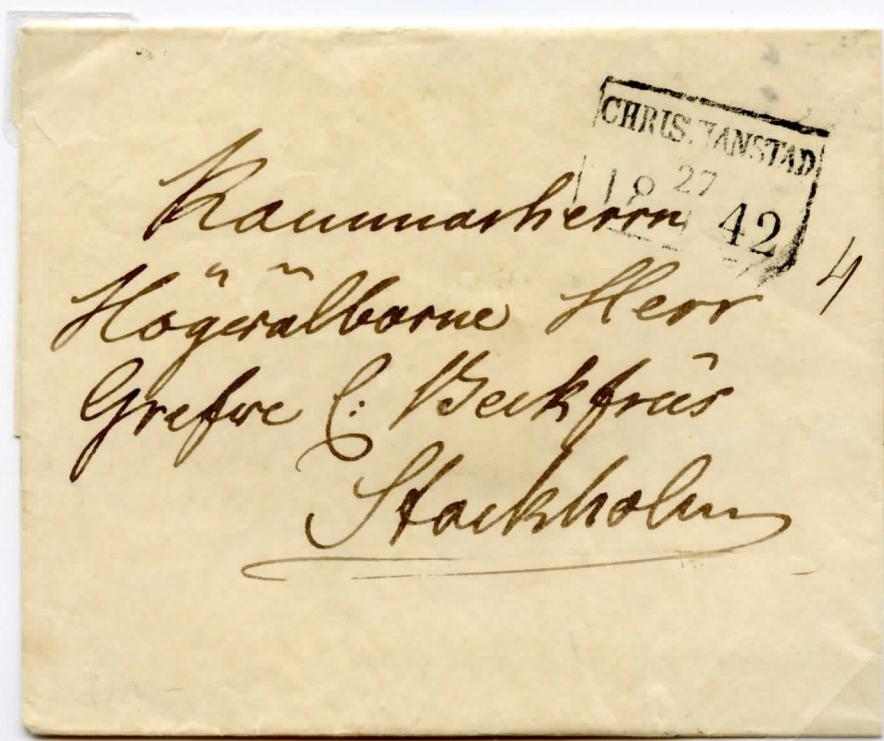 CHRISTIANSTAD
27
18 42
4
Kammarherrn
Högwälborne Herr
Grefwe C: Beckfriis
Stockholm